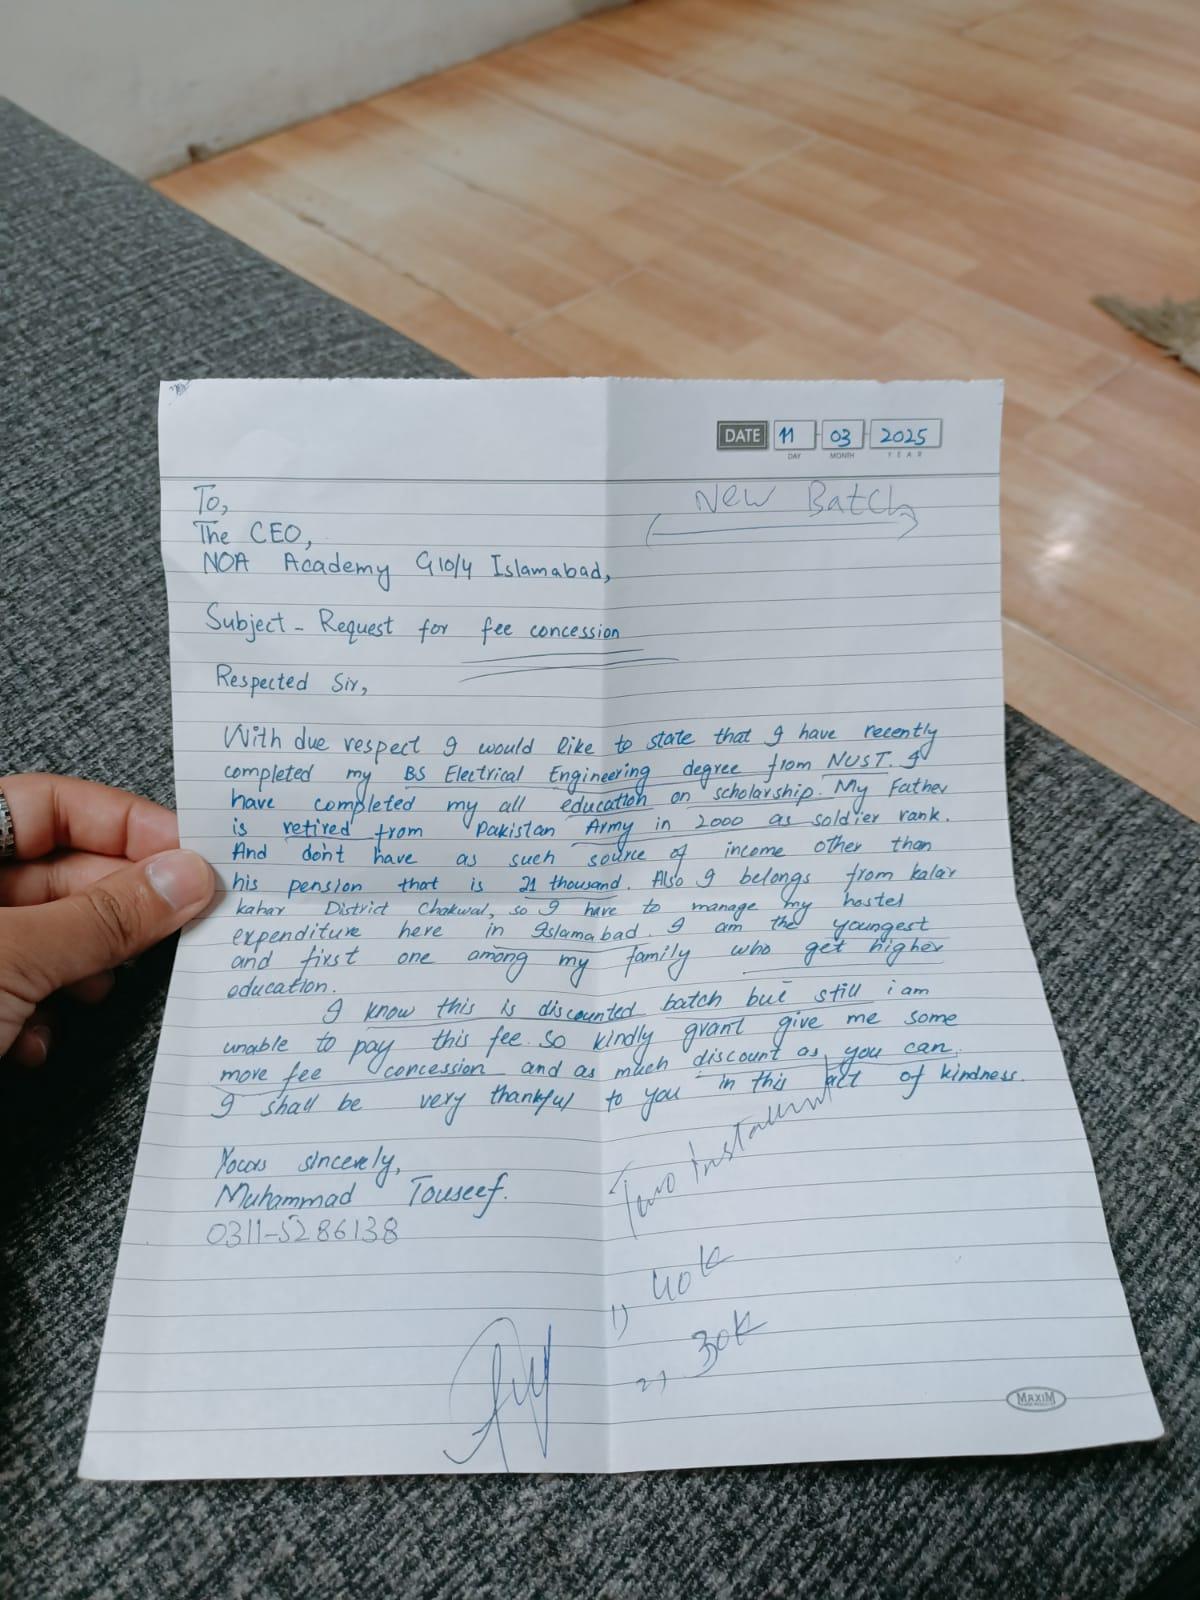 DATE 11 03 2025
DAY MONTH YEAR
New Batch
To,
The CEO,
NOA Academy G10/4 Islamabad,
Subject - Request for fee concession
Respected Sir,
With due respect I would like to state that I have recently
completed my BS Electrical Engineering degree from NUST. I
have completed my all education on scholarship. My Father
is retired from Pakistan Army in 2000 as soldier rank.
And don't have as such source of income other than
his pension that is 21 thousand. Also I belongs from kalar
kahar District Chakwal, so I have to manage my hostel
expenditure here in Islamabad. I am the youngest
and first one among my family who get higher
education.
I know this is discounted batch but still i am
unable to pay this fee. so kindly grant give me some
more fee concession and as much discount as you can.
I shall be very thankful to you in this act of kindness.
Yours sincerely,
Muhammad Touseef.
0311-5286138
Two Installment
1) 40k
2) 30k
MAXIM